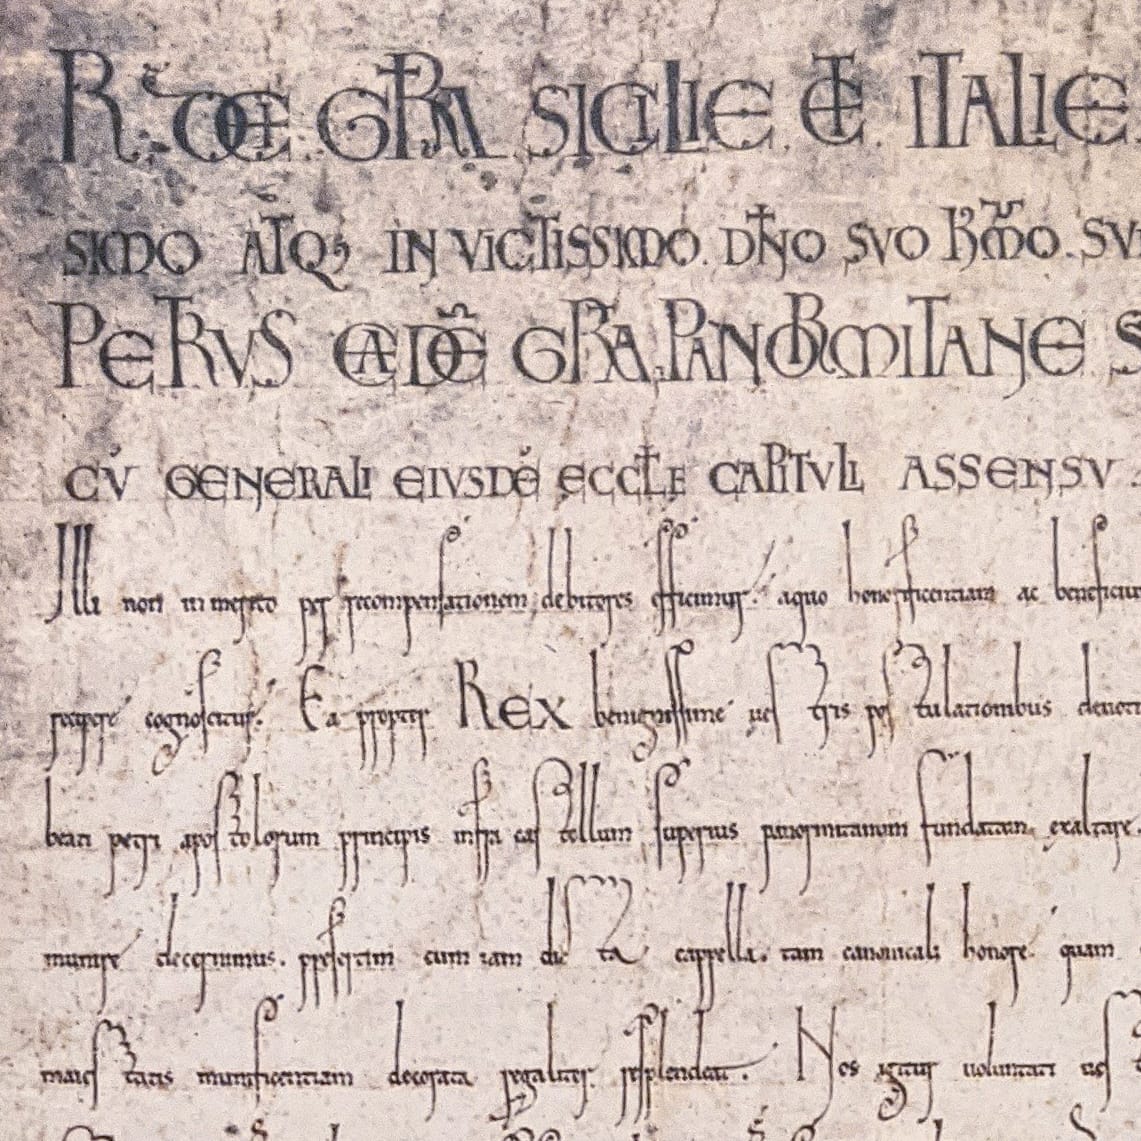 R. DE GRA SICILIE ET ITALIE
SIMO ATQ; INVICTISSIMO. DNO SUO KMO. SV
PETRVS EADE GRA PANORMITANE S
CV GENERALI EIVSDE ECCLE CAPITVLI ASSENSV :
Illi non inmerito per recompensationem debitores efficimur. a quo honorificentiam ac beneficium
recipere cognoscitur. Ea propter REX benignissime vestris postulationibus devoti
beati petri apostolorum principis infra castellum superius panormitanum fundatam exaltare.
munire decernimus. presertim cum iam dicta cappella. tam canonicali honore. quam
maiestatis munificentiam decorata regaliter resplendeat. Nos igitur voluntati